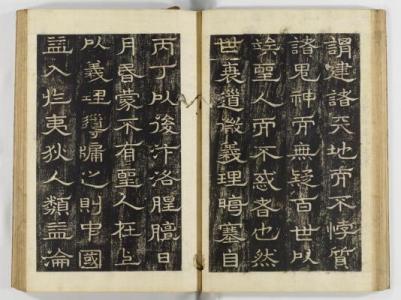 謂建諸天地而不悖質
諸鬼神而無疑百世以
竢聖人而不惑者也然
世衰道微義理晦塞自
丙丁以後汴洛腥膻日
月昏蒙不有聖人在上
以義理導牖之則中國
益入於夷狄人類益淪